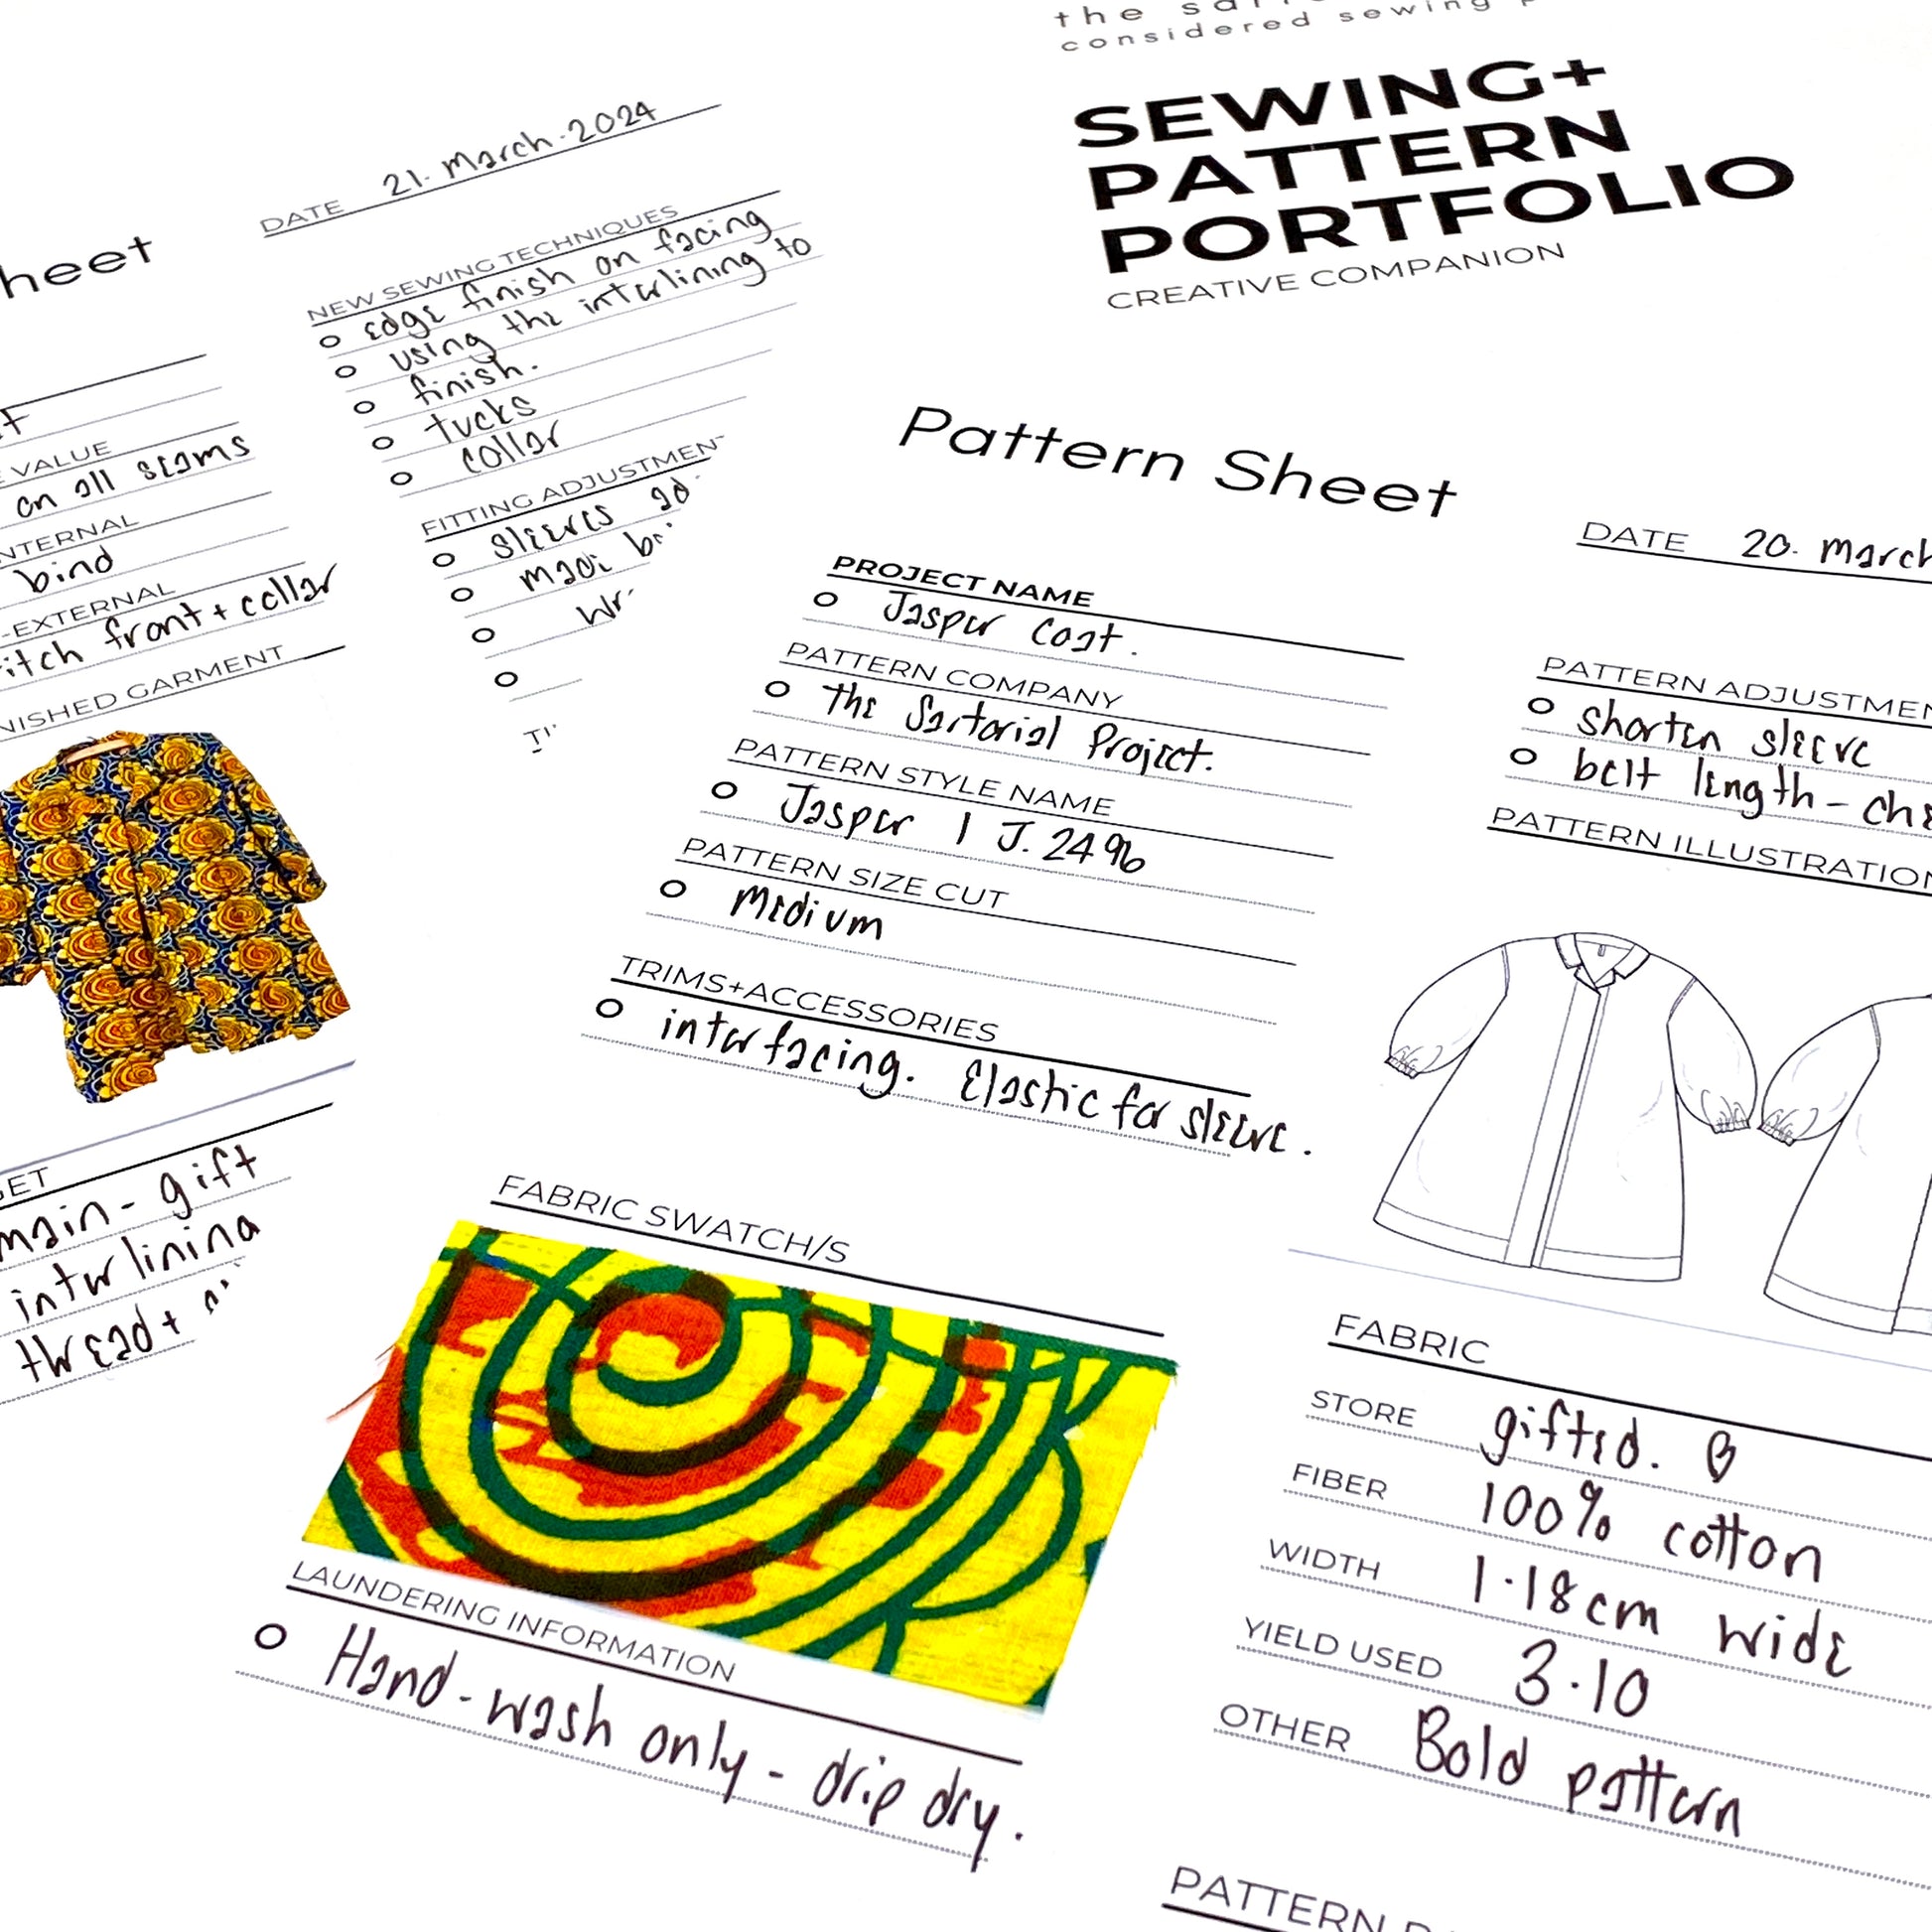 the
considered sewing
SEWING+
PATTERN
PORTFOLIO
CREATIVE COMPANION
heet
DATE 21. March. 2024
VALUE
on all seams
bind
EXTERNAL
front + collar
GARMENT
main - gift
interlining
thread +
NEW SEWING TECHNIQUES
edge finish on facing
using the interlining to
finish.
tucks
collar
FITTING ADJUSTMEN
sleeves
Pattern Sheet
DATE 20. March
PROJECT NAME
Jasper Coat.
PATTERN COMPANY
The Sartorial Project.
PATTERN STYLE NAME
Jasper | J. 2496
PATTERN SIZE CUT
Medium
TRIMS+ACCESSORIES
interfacing. Elastic for sleeve.
FABRIC SWATCH/S
LAUNDERING INFORMATION
Hand-wash only - drip dry.
PATTERN ADJUSTME
shorten sleeve
belt length -
PATTERN ILLUSTRATION
FABRIC
STORE gifted.
FIBER 100% cotton
WIDTH 1.18cm wide
YIELD USED 3.10
OTHER Bold pattern
PATTERN